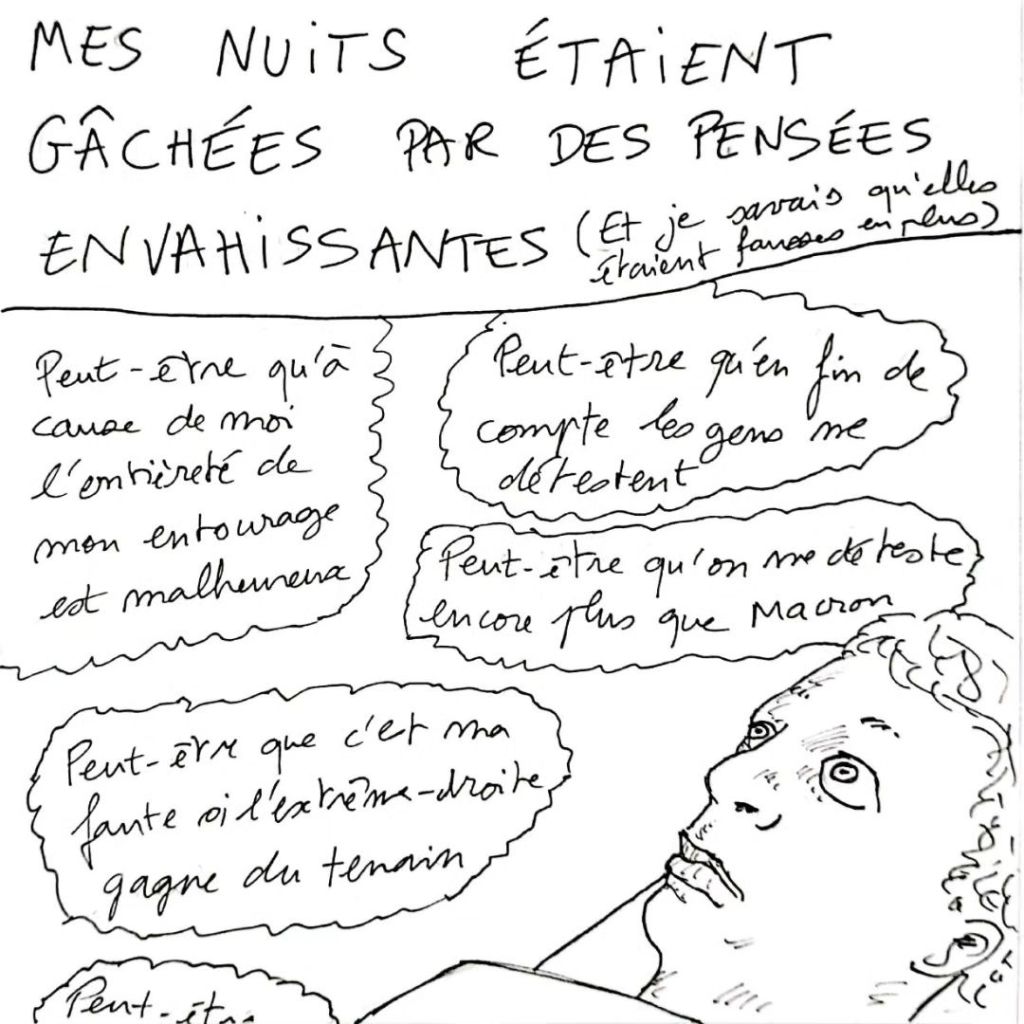 MES NUITS ÉTAIENT
GÂCHÉES PAR DES PENSÉES
ENVAHISSANTES (Et je savais qu'elles
étaient fausses en plus)
Peut-être qu'à
cause de moi
l'entièreté de
mon entourage
est malheureux
Peut-être qu'en fin de
compte les gens me
détestent
Peut-être qu'on me déteste
encore plus que Macron
Peut-être que c'est ma
faute si l'extrême-droite
gagne du terrain
Peut-être